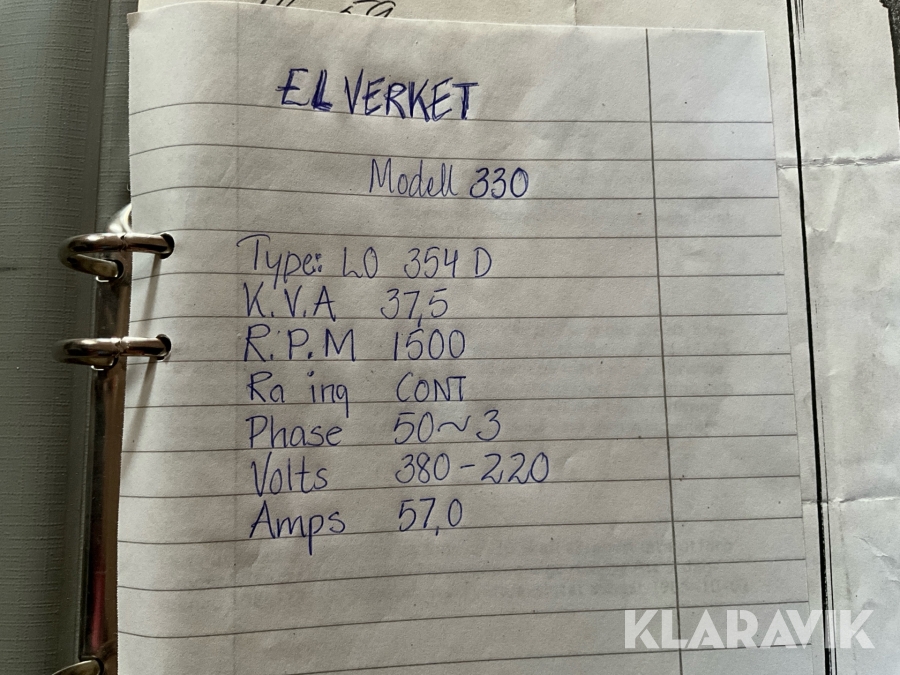 EL VERKET
Modell 330
Type: LO 354 D
K.V.A 37,5
R.P.M 1500
Ra ing CONT
Phase 50~3
Volts 380-220
Amps 57,0
KLARAVIK